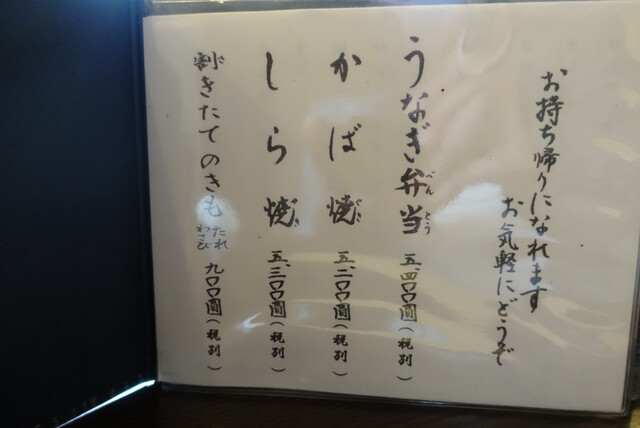 お持ち帰りになれます
お気軽にどうぞ
うなぎ弁当 べんとう 五、四〇〇圓(税別)
かば焼 五、二〇〇圓(税別)
しら焼 五、三〇〇圓(税別)
割きたてのきも たれ わさび 九〇〇圓(税別)